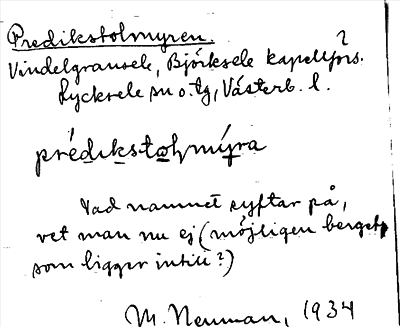 Predikstolmyren.
Vindelgransele, Björksele kapellförs. ?
Lycksele sn o. tg, Västerb. l.
prédikstoḷmýra
Vad namnet syftar på,
vet man nu ej (möjligen berget,
som ligger intill?)
M. Neuman, 1934